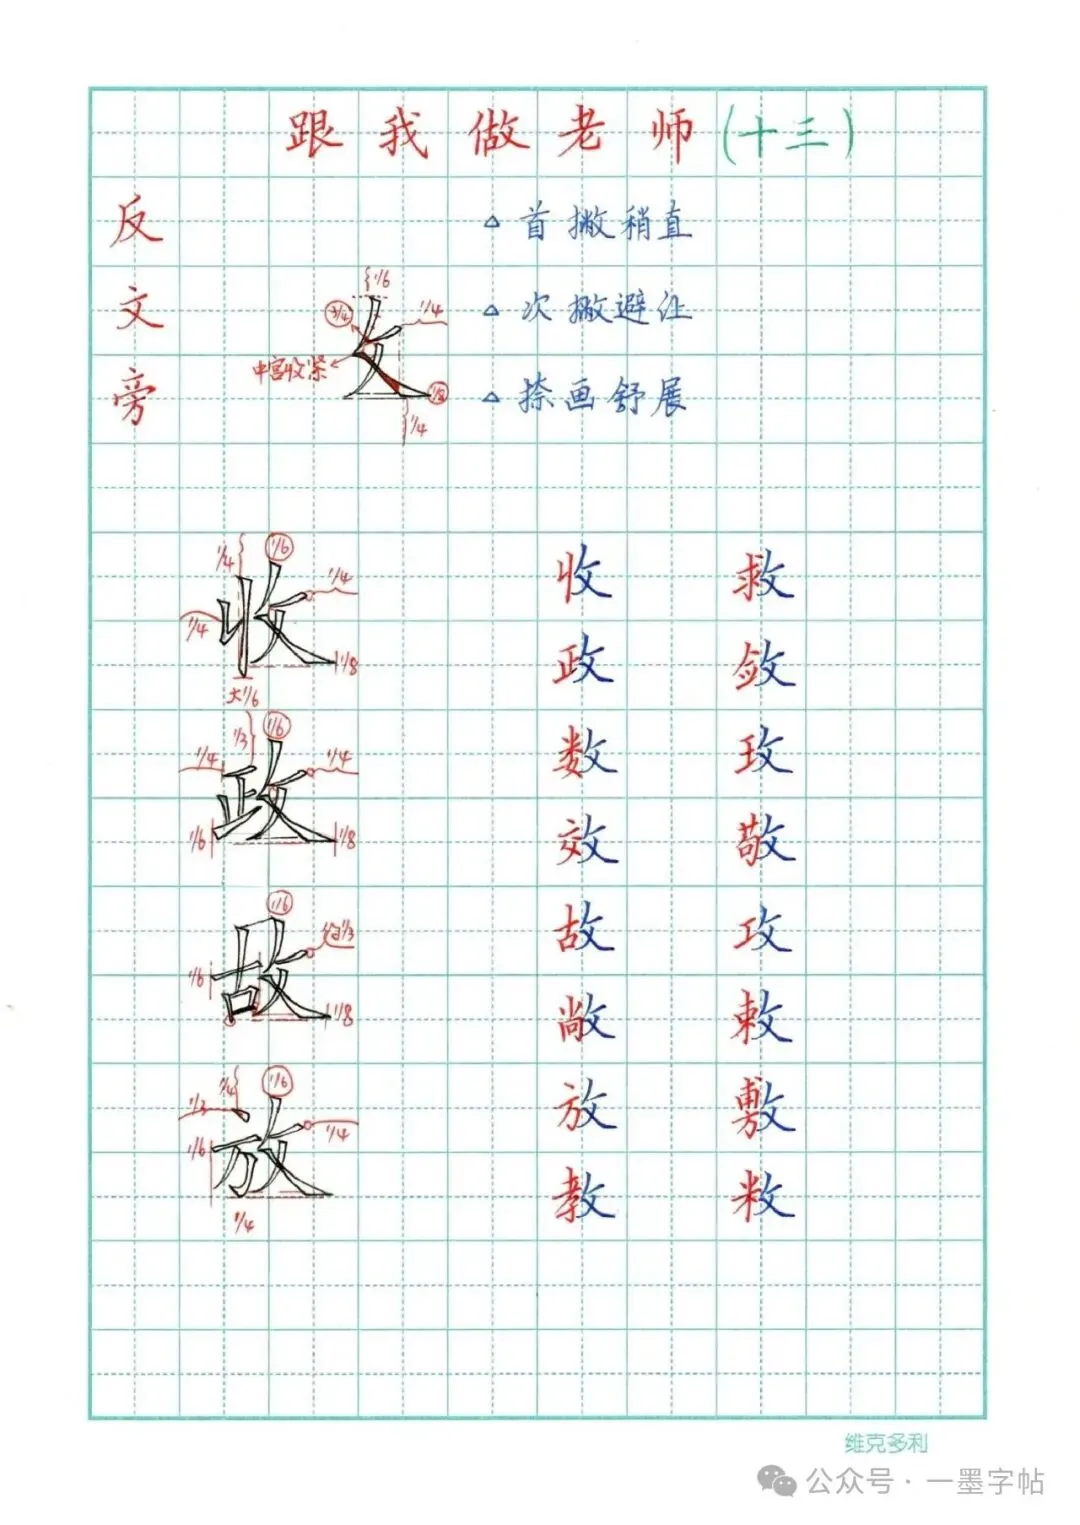 跟我做老师(十三)
反文旁
△首撇稍直
△次撇避让
△捺画舒展
1/6
3/4
1/4
中宫收紧
攵
1/8
1/4
1/4
1/6
1/4
1/4
收
1/8
大1/6
收 救
政 敛
1/3
1/6
1/4
1/4
政
1/6
1/8
数 玫
效 敬
1/6
约1/3
故
1/6
1/8
故 攻
敞 敕
1/4
1/6
1/3
1/4
放
1/6
1/4
放 敷
教 敉
维克多利
公众号·一墨字帖